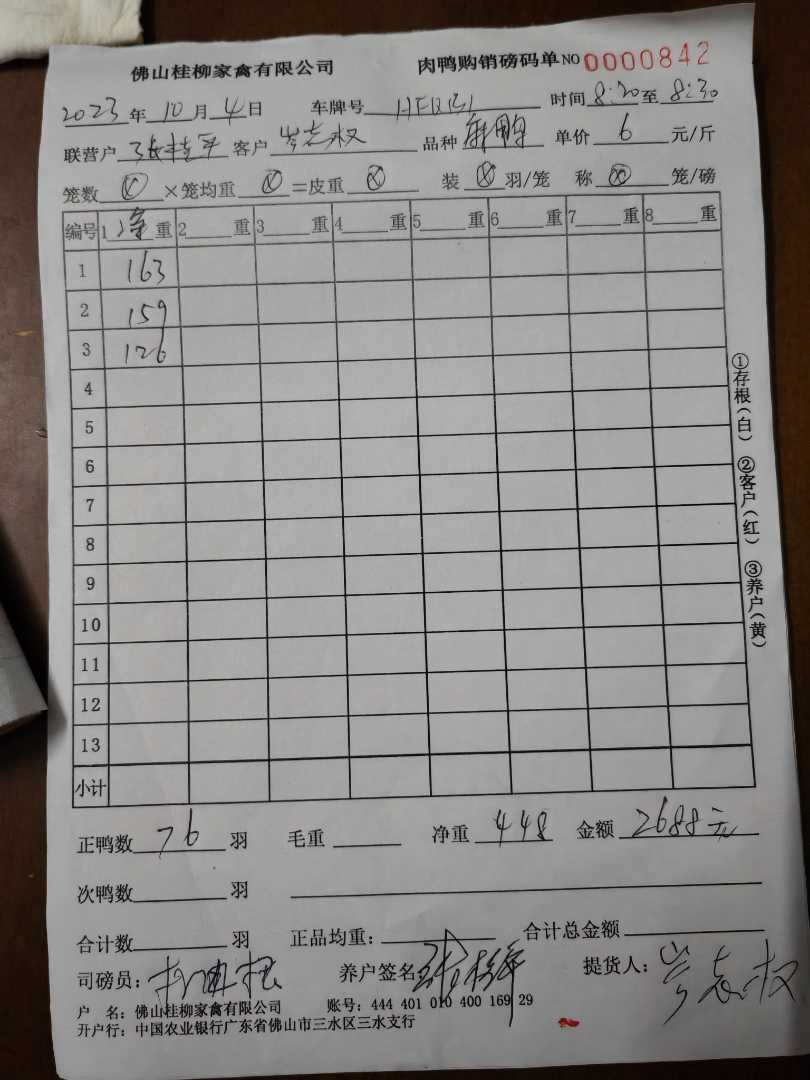 佛山桂柳家禽有限公司 肉鸭购销磅码单 NO 0000842
2023年10月4日 车牌号 时间 8:20至 8:30
联营户 张桂平 客户 岑志权 品种 麻鸭 单价 6 元/斤
笼数 ⊗ ×笼均重 ⊗ =皮重 ⊗ 装 ⊗ 羽/笼 称 ⊗ 笼/磅
编号 1 净 重 2 重 3 重 4 重 5 重 6 重 7 重 8 重
1 163
2 159
3 126
4
5
6
7
8
9
10
11
12
13
小计
①存根(白) ②客户(红) ③养户(黄)
正鸭数 76 羽 毛重 净重 448 金额 2688元
次鸭数 羽
合计数 羽 正品均重: 合计总金额
司磅员: 养户签名 张桂平 提货人: 岑志权
户 名: 佛山桂柳家禽有限公司 账号: 444 401 010 400 169 29
开户行: 中国农业银行广东省佛山市三水区三水支行